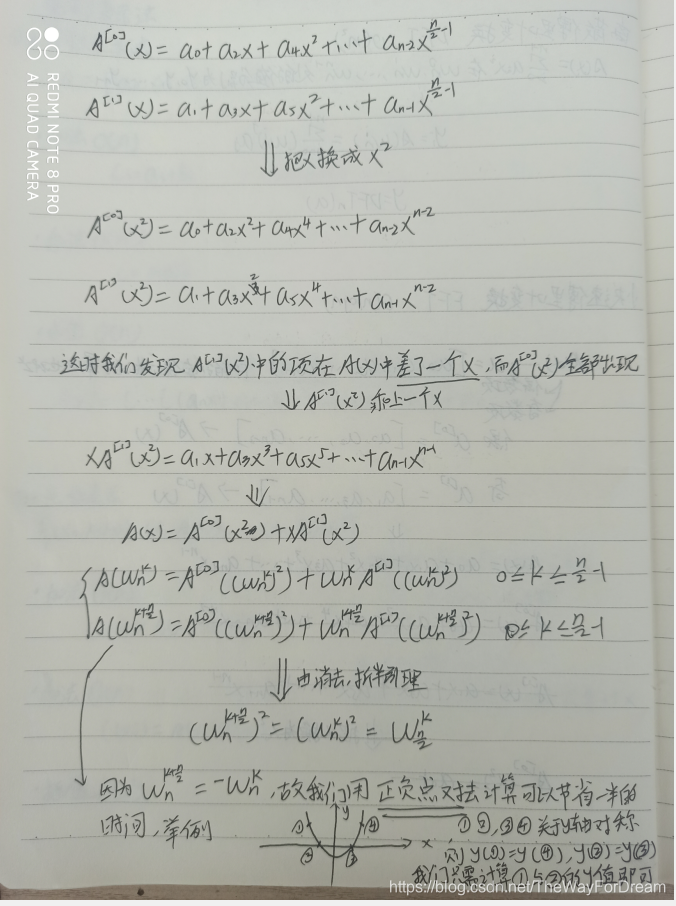 REDMI NOTE 8 PRO
AI QUAD CAMERA
A^[0](x) = a₀+a₂x+a₄x²+…+a_{n-2}x^{n/2-1}
A^[1](x) = a₁+a₃x+a₅x²+…+a_{n-1}x^{n/2-1}
⇓ 把x换成x²
A^[0](x²) = a₀+a₂x²+a₄x⁴+…+a_{n-2}x^{n-2}
A^[1](x²) = a₁+a₃x²+a₅x⁴+…+a_{n-1}x^{n-2}
这时我们发现 A^[1](x²)中的项在A(x)中差了一个x,而A^[0](x²)全部出现
⇓ A^[1](x²)乘上一个x
xA^[1](x²) = a₁x+a₃x³+a₅x⁵+…+a_{n-1}x^{n-1}
⇓
A(x) = A^[0](x²)+xA^[1](x²)
A(ω_n^k) = A^[0]((ω_n^k)²)+ω_n^k A^[1]((ω_n^k)²) 0≤k≤n/2-1
A(ω_n^{k+n/2}) = A^[0]((ω_n^{k+n/2})²)+ω_n^{k+n/2} A^[1]((ω_n^{k+n/2})²) 0≤k≤n/2-1
⇓ 由消去,折半引理
(ω_n^{k+n/2})² = (ω_n^k)² = ω_{n/2}^k
因为 ω_n^{k+n/2} = -ω_n^k,故我们用正负点对去计算可以节省一半的
时间,举例
y
x
① ④
② ③
①④,②③关于y轴对称
则 y(①)=y(④),y(②)=y(③)
我们只需计算①与②的y值即可
https://blog.csdn.net/TheWayForDream